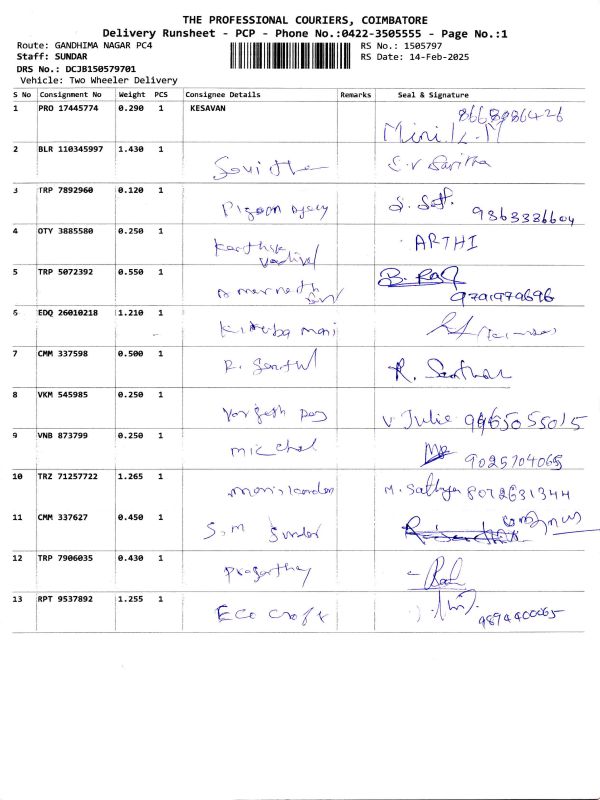 THE PROFESSIONAL COURIERS, COIMBATORE
Delivery Runsheet - PCP - Phone No.:0422-3505555 - Page No.:1
Route: GANDHIMA NAGAR PC4 RS No.: 1505797
Staff: SUNDAR RS Date: 14-Feb-2025
DRS No.: DCJB150579701
Vehicle: Two Wheeler Delivery
S No Consignment No Weight PCS Consignee Details Remarks Seal & Signature
1 PRO 17445774 0.290 1 KESAVAN
Mini.K.M
2 BLR 110345997 1.430 1
S.V Saritha
3 TRP 7892960 0.120 1
9363336604
4 OTY 3885580 0.250 1 ARTHI
Karthik
5 TRP 5072392 0.550 1
9791979696
6 EDQ 26010218 1.210 1
Kiruba mani
7 CMM 337598 0.500 1
R. Senthil
8 VKM 545985 0.250 1
V Julie
9 VNB 873799 0.250 1
michel 9025704065
10 TRZ 71257722 1.265 1
M. Sathya 8072631344
11 CMM 337627 0.450 1
S.M Sundar
12 TRP 7906035 0.430 1
13 RPT 9537892 1.255 1
Eco craft 9894400065